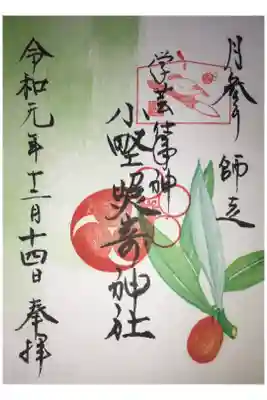 月参り 師走
学芸の神
小野照崎神社
令和元年十二月十四日 奉拝